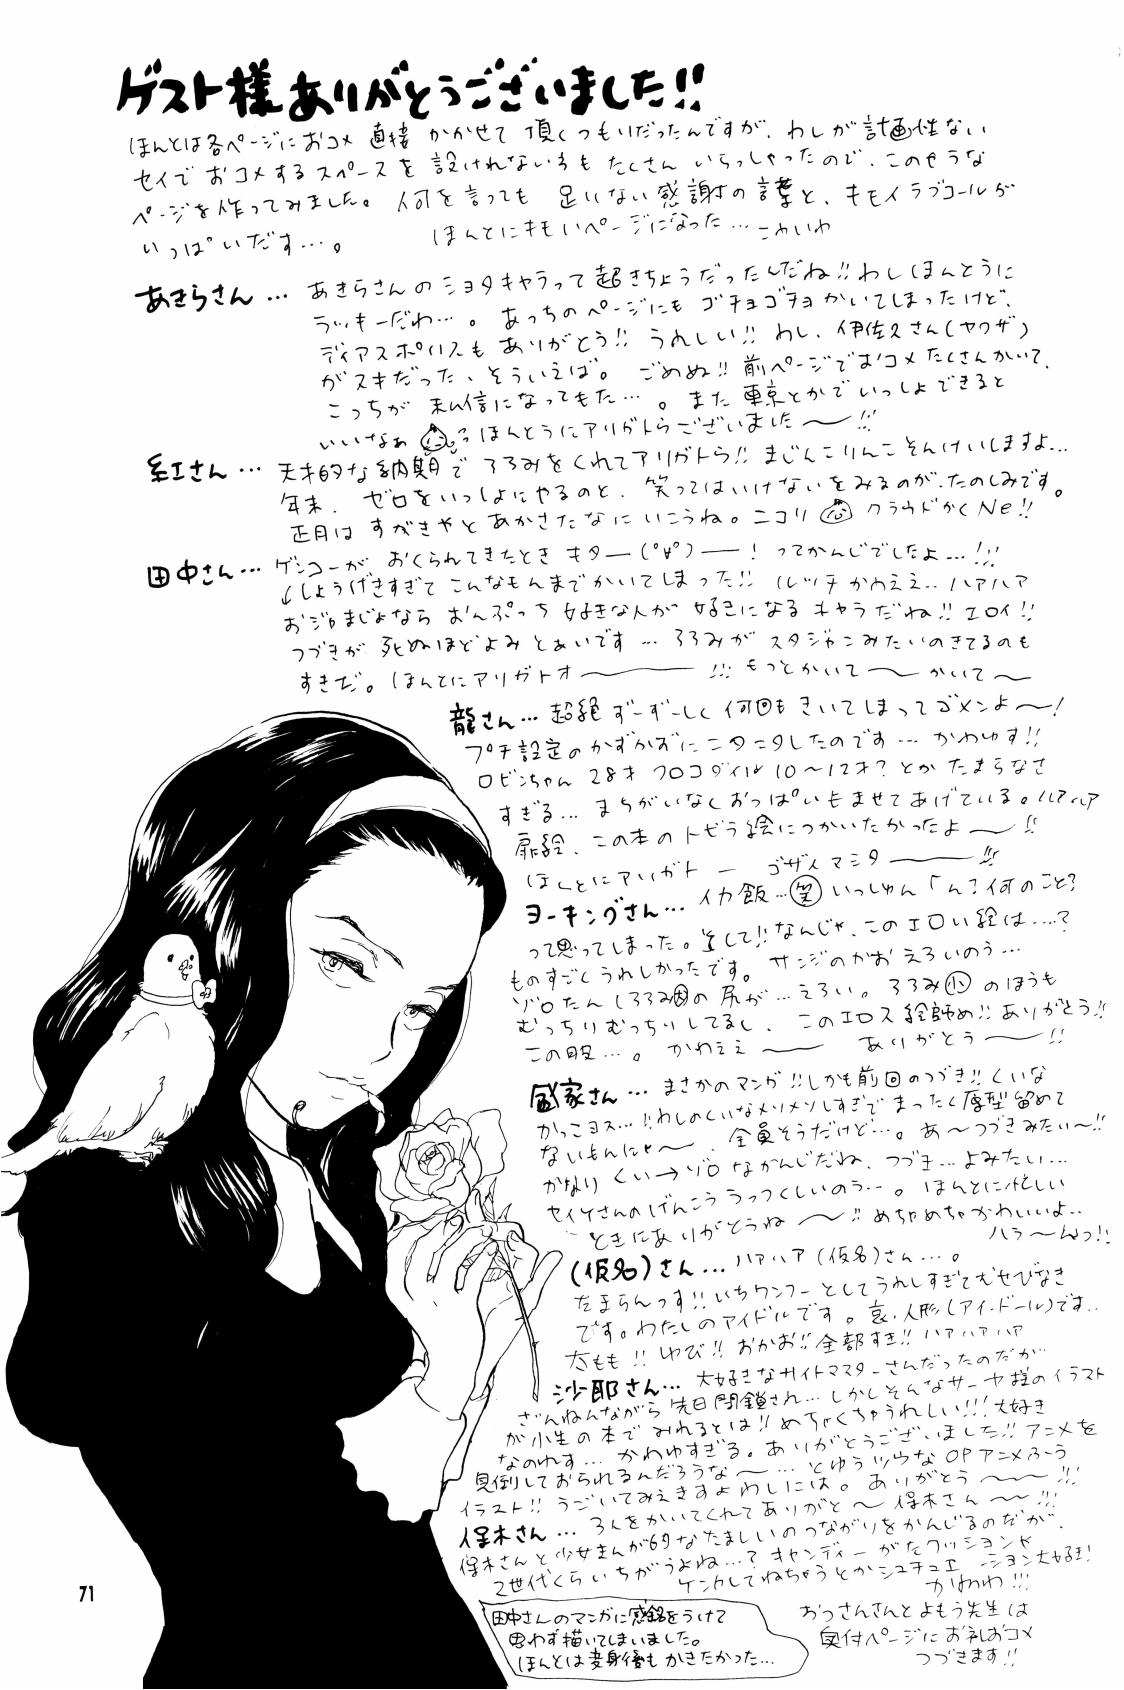 ゲスト様ありがとうございました!!
ほんとは各ページにおコメ 直接 かかせて 頂くつもりだったんですが、わしが計画性ない
セイでおコメするスペースを設けれない方もたくさんいらっしゃったので、このような
ページを作ってみました。何を言っても 足りない感謝の言葉と、キモイラブコールが
いっぱいだす…。
ほんとにキモいページになった… こわいわ
あきらさん… あきらさんのショタキャラって超きちょうだったんだね!!わしほんとうに
ラッキーだわ…。あっちのページにもゴチョゴチョかいてしまったけど、
ディアスポリスもありがとう!!うれしい!!わし、伊佐久さん(ヤクザ)
がスキだった、そういえば。ごめぬ!!前ページでおコメたくさんかいて、
こっちが 私信になってもた…。また東京とかでいっしょできると
いいなぁ ほんとうにアリガトうございました〜!!
紅さん… 天才的な納期で ろろみをくれてアリガトう!!まじんこりんこそんけいしますよ…
年末、ゼロをいっしょにやるのと、笑ってはいけないをみるのが、たのしみです。
正月は すがきやと あかさたなに いこうね。ニコリ クラウドかくNe!!
田中さん… ゲンコーがおくられてきたとき キター(゚∀゚)ー!ってかんじでしたよ…!!
↓しょうげきすぎてこんなもんまでかいてしまった!!ルッチかわええ…ハアハア
おジャまじょなら おんぷっち好きな人が 好きになるキャラだね!!エロイ!!
つづきが 死ぬほどよみとぁいです…ろろみが スタジャンみたいのきてるのも
すきだ。ほんとにアリガトオー!!!もっとかいて〜かいて〜
龍さん… 超絶ずーずーしく何回もきいてしまってゴメンよ〜!
プチ設定のかずかずにニタニタしたのです…かわゆす!!
ロビンちゃん28才 クロコダイル10〜12才?とかたまらなさ
すぎる… まちがいなくおっぱいもませてあげている。ハアハア
扉絵、この本のトビラ絵につかいたかったよ〜!!
ほんとにアリガトー ゴザイマシター!!
ヨーキングさん… イカ飯…笑 いっしゅん「ん?何のこと?
って思ってしまった。そして!!なんじゃ、このエロい絵は…?
ものすごくうれしかったです。サンジのかおえろいのう…
ゾロたん(ろろみ)の尻が…えろい。ろろみ小のほうも
むっちりむっちりしてるし、このエロス絵師め!!ありがとう!!
この股…。かわええ〜 ありがとう〜!!
盛家さん… まさかのマンガ!!しかも前回のつづき!!くいな
かっこヨス…!!わしのくいなメソメソしすぎでまったく原型留めて
ないもんにゃ〜、全員そうだけど…。あ〜つづきみたい〜!!
かなり くい→ゾロ なかんじだね、つづき…よみたい…
セイケさんのげんこううっつくしいのう…。ほんとに忙しい
ときにありがとうね〜!!めちゃめちゃかわいいよ…
ハラ〜んっ!!
(仮名)さん… ハアハア(仮名)さん…。
たまらんっす!!いちワンフーとしてうれしすぎてむせびなき
です。わたしのアイドルです。哀・人形(アイ・ドール)です…
太もも!!ゆび!!おかお!!全部すき!!ハアハアハア
沙耶さん… 大好きなサイトマスターさんだったのだが
ざんねんながら先日閉鎖され…しかしそんなサーヤ様のイラスト
が小生の本でみれるとは!!めちゃくちゃうれしい!!!大好き
なのれす…かわゆすぎる。ありがとうございました!!アニメを
見倒しておられるんだろうな〜…とゆうツウなOPアニメふう
イラスト!!うごいてみえますよわしには。ありがとう〜!!!
保木さん… 3人をかいてくれてありがと〜保木さん〜!!!
保木さんと少女まんが的なたましいのつながりをかんじるのだが、
2世代くらいちがうよね…?キャンディーがたクッションや
ケンカしてねちゃうとかシュチュエーション大好き!
かわわ!!!
田中さんのマンガに感銘をうけて
思わず描いてしまいました。
ほんとは変身後もかきたかった…
おっさんさんとよもう先生は
奥付ページにお礼おコメ
つづきます!!
71